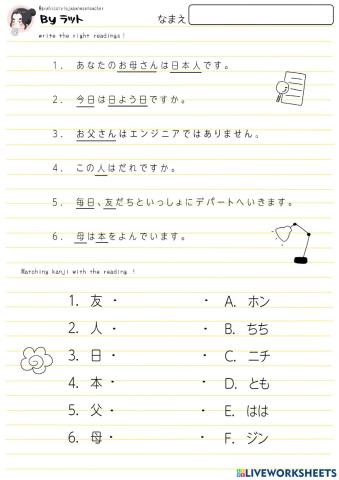 By ラット
なまえ
write the right readings!
1. あなたのお母さんは日本人です。
2. 今日は日よう日ですか。
3. お父さんはエンジニアではありません。
4. この人はだれですか。
5. 毎日、友だちといっしょにデパートへいきます。
6. 母は本をよんでいます。
Matching kanji with the reading !
1. 友 · · A. ホン
2. 人 · · B. ちち
3. 日 · · C. ニチ
4. 本 · · D. とも
5. 父 · · E. はは
6. 母 · · F. ジン
LIVEWORKSHEETS